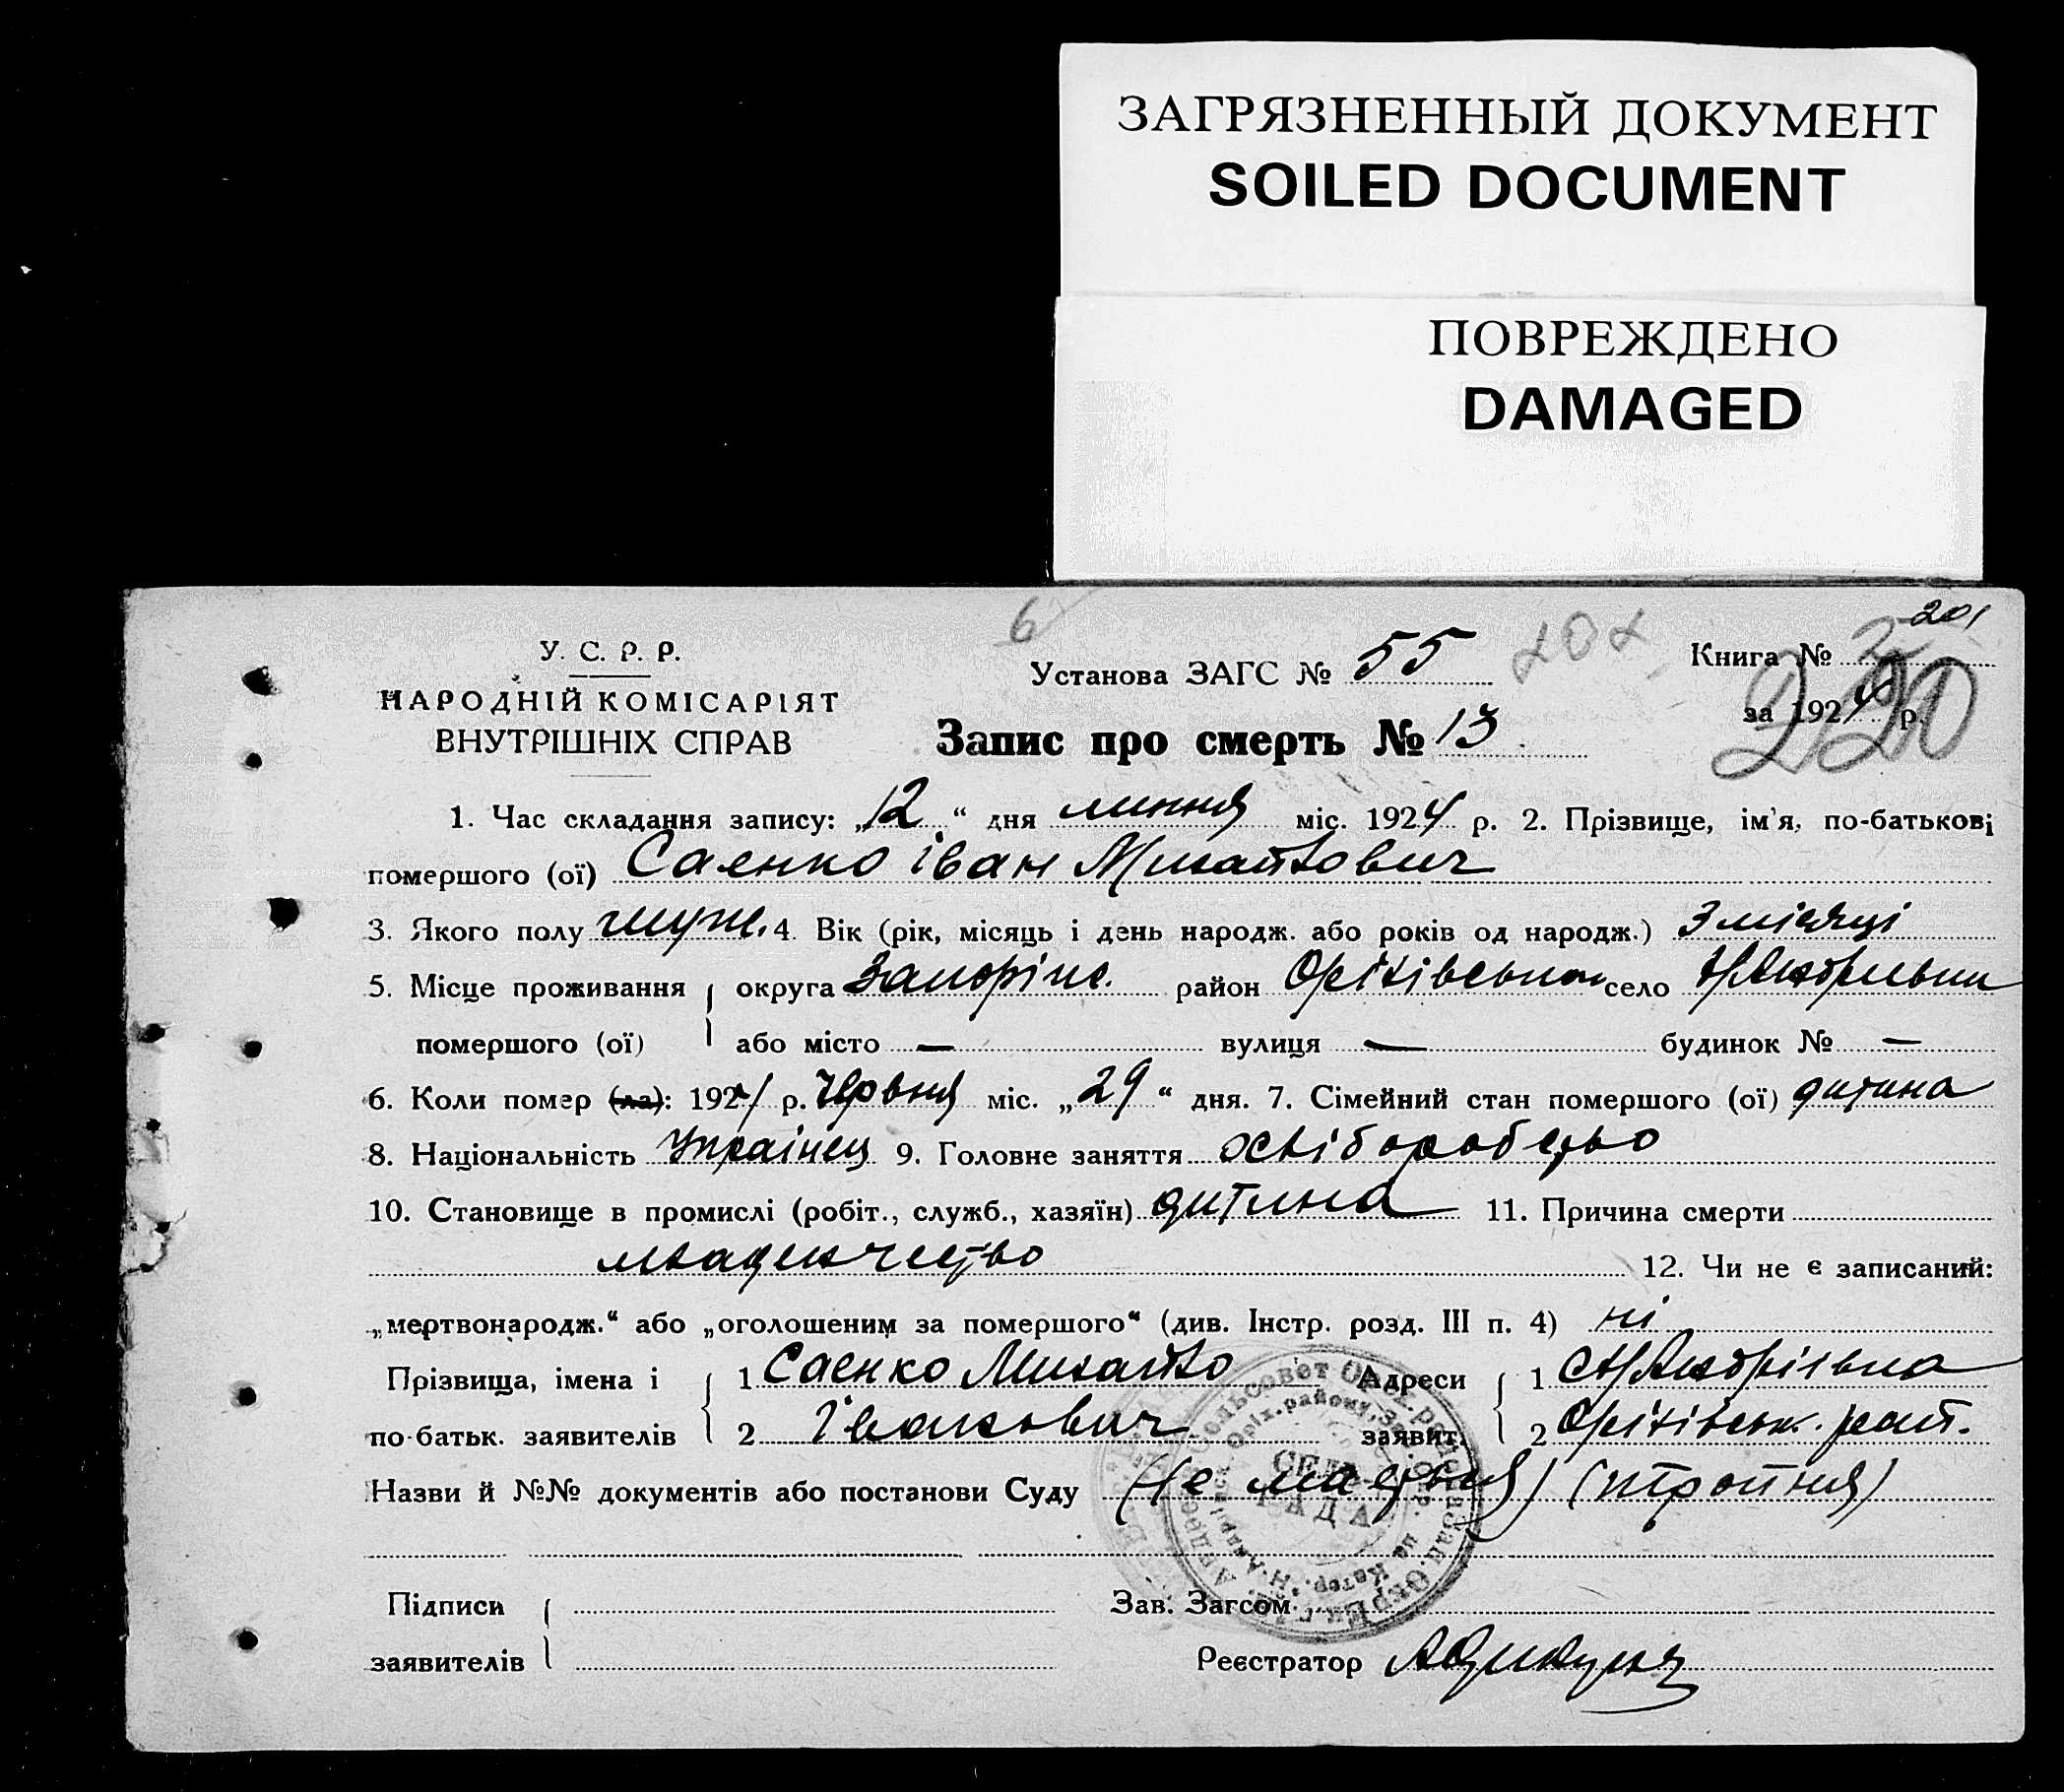 ЗАГРЯЗНЕННЫЙ ДОКУМЕНТ
SOILED DOCUMENT
ПОВРЕЖДЕНО
DAMAGED
201
6
У. С. Р. Р.
Установа ЗАГС № 55
Книга № 2
НАРОДНІЙ КОМІСАРІЯТ
ВНУТРІШНІХ СПРАВ
220
за 1924 р.
Запис про смерть № 13
1. Час складання запису: „12“ дня липня міс. 1924 р. 2. Прізвище, ім'я, по-батькові
помершого (ої) Саєнко Іван Михайлович
3. Якого полу муж. 4. Вік (рік, місяць і день народж. або років од народж.) 3 місяці
5. Місце проживання округа Запоріж. район Оріхівськ село
помершого (ої) або місто — вулиця — будинок № —
6. Коли помер (ла): 192 р. Червня міс. „29“ дня. 7. Сімейний стан помершого (ої) дитина
8. Національність Украінец 9. Головне заняття хліборобство
10. Становище в промислі (робіт., служб., хазяїн) дитина 11. Причина смерти
младенчество 12. Чи не є записаний:
„мертвонародж.“ або „оголошеним за помершого“ (див. Інстр. розд. III п. 4) ні
Прізвища, імена і 1 Саєнко Михайло Адреси 1
по-батьк. заявителів 2 Іванович заявит. 2 Оріхівськ. рай.
Назви й №№ документів або постанови Суду
СЕЛ
РАДА
Підписи Зав. Загсом
заявителів Реєстратор